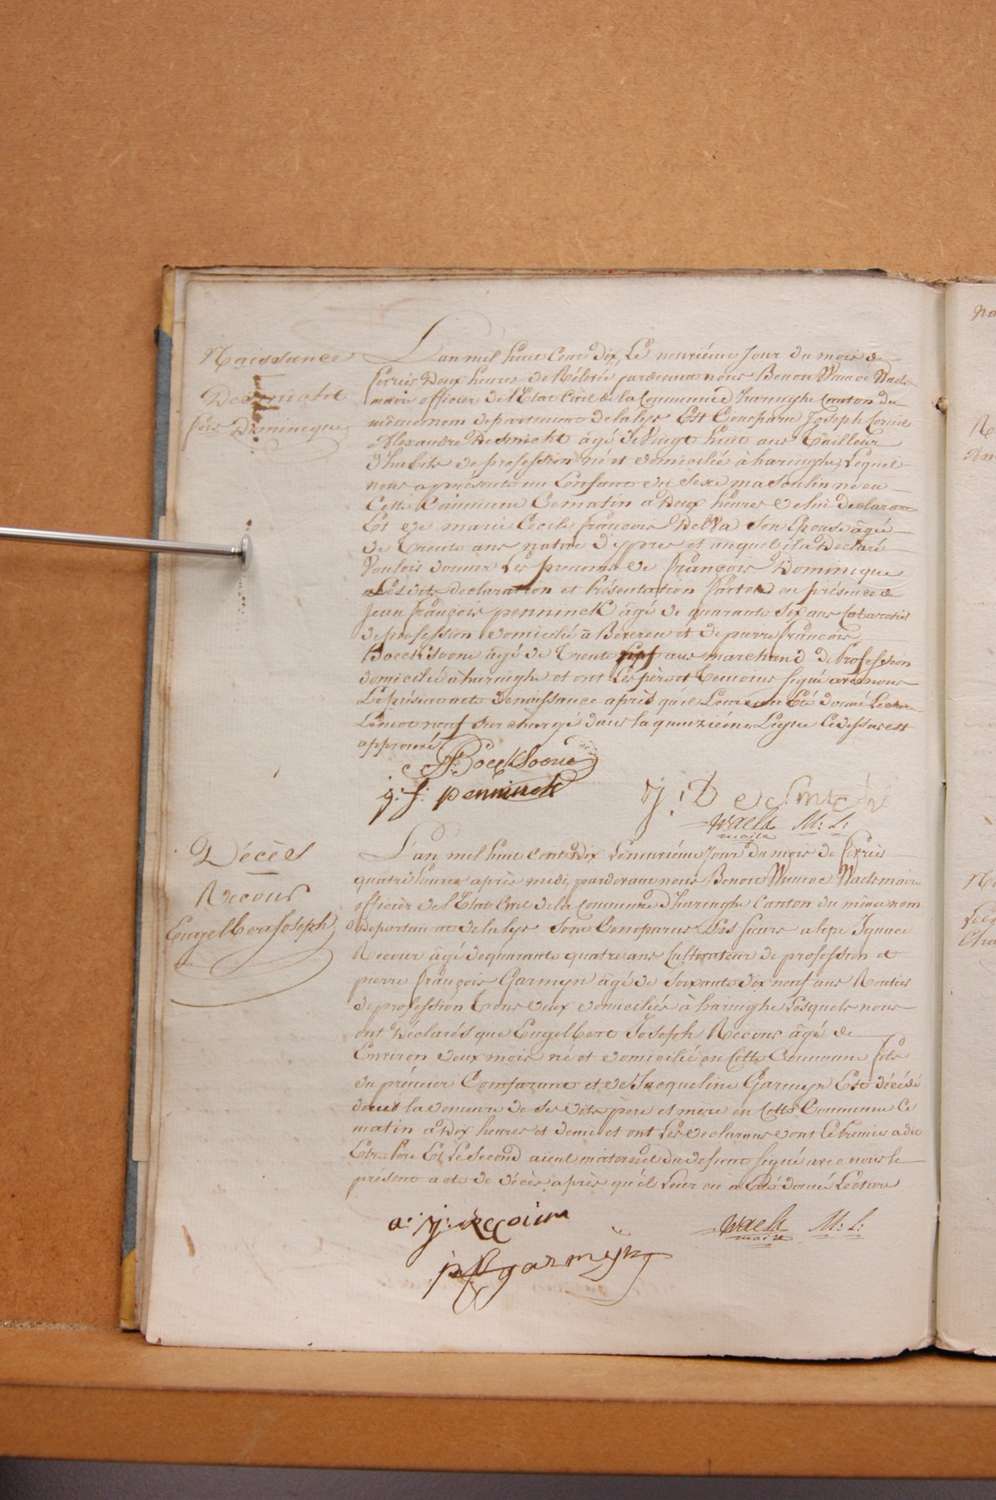 Naissance
Desmicht
fçois Dominique
L'an mil huit Cent dix, Le neuvième Jour du mois de
fevrier Deux heures de Relevée pardevant nous Benoit Waels
maire officier de l'Etat Civil de la Commune d'haringhe Canton du
même nom departement de la lys Est Comparu Joseph
Alexandre Desmicht âgé de Vingt huit ans Tailleur
d'habits de profession né et domicilié à haringhe, Lequel
nous a présenté un Enfant du sexe masculin né en
Cette Commune Ce matin a Deux heures de lui déclarant
Et de marie Cecile françoise Delva Son Epouse âgée
de Trente ans native d'ypres et auquel il a Déclaré
Vouloir donner Les prenoms de François Dominique
Les dits declaration et Présentation faites en présence de
Jean françois penninck âgé de quarante Six ans Cabaretier
de profession domicilié à Beveren et de pierre françois
Boecksoone âgé de Trente neuf ans marchand de Profession
domicilié à haringhe et ont Les père et temoins signé avec nous
Le présent acte de naissance après qu'il Leur en a Eté donné Lecture
Le mot neuf surchargé dans la quinzième Ligne Cidessus est
approuvé
Boecksoone
j: f: penninck
j: Desmicht
Waels M: L:
maire
Décès
Recour
Engelbert Joseph
L'an mil huit Cent Dix Le neuvième Jour du mois de fevrier
quatre heures après midi, pardevant nous Benoit Waels maire
officier de l'Etat Civil de la Commune d'haringhe Canton du même nom
departement de la lys Sont Comparus Les sieurs Ignace
Recour âgé de quarante quatre ans Cultivateur de profession et
pierre françois Garmyn âgé de Soixante dix neuf ans Rentier
de profession Tous deux domiciliés à haringhe Lesquels nous
ont Déclarés que Engelbert Joseph Recour âgé de
Environ deux mois né et domicilié en Cette Commune fils
du prémier Comparant et de Jacqueline Garmyn Est décédé
dans la demeure de ses dits père et mere en Cette Commune Ce
matin à Dix heures et demie et ont Les declarans dont Le premier a dit
Etre père Et Le Second aieul maternel du defunt signé avec nous le
présent acte de décès après qu'il Leur en a Eté donné Lecture
a: j: Recour
p f garmijn
Waels M: L:
maire